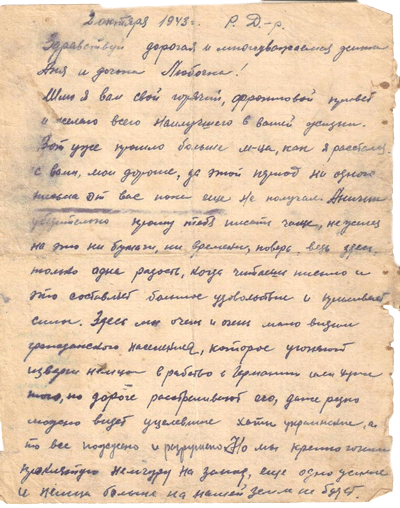 2 октября 1943 г. Р. Д-р.
Здравствуй дорогая и многоуважаемая жена
Аня и дочка Любочка!
Шлю я вам свой горячий, фронтовой привет
и желаю всего наилучшего в вашей жизни.
Вот уже прошло больше м-ца, как я расстался
с вами, мои дорогие, за этой период ни одного
письма от вас пока еще не получал. Анички
убедительно прошу тебя писать чаще, не жалея
на это ни бумаги, ни времени, поверь, ведь здесь
только одна радость, когда читаешь письмо и
это составляет большое удовольствие и прибавляет
силы. Здесь мы очень и очень мало видим
гражданского населения, которое угоняют
изверги немцы в рабство в Германию или хуже
того, по дороге расстреливают его, даже редко
можно видеть уцелевшие хаты украинские, а
то все пожжено и разрушено. Но мы крепко гоним
проклятую немчуру на запад, еще одно усилие
и немца больше на нашей земле не будет.